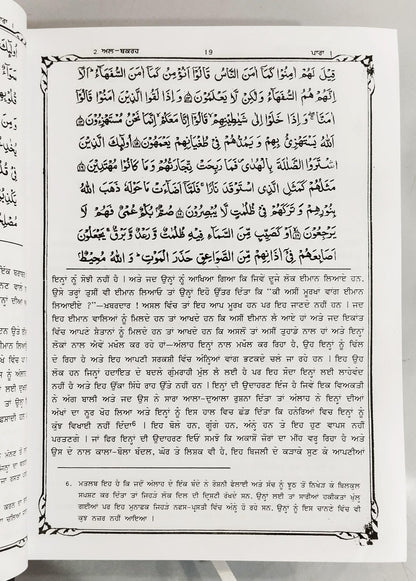 2 ਅਲ-ਬਕਰਹ 19 ਪਾਰਾ 1
قِيْلَ لَهُمْ اٰمِنُوْا كَمَاۤ اٰمَنَ النَّاسُ قَالُوْۤا اَنُؤْمِنُ كَمَاۤ اٰمَنَ السُّفَهَآءُ ؕ اَلَاۤ
اِنَّهُمْ هُمُ السُّفَهَآءُ وَلٰكِنْ لَّا يَعْلَمُوْنَ ۝ وَاِذَا لَقُوا الَّذِيْنَ اٰمَنُوْا قَالُوْۤا
اٰمَنَّا ۚ وَاِذَا خَلَوْا اِلٰى شَيٰطِيْنِهِمْ ۙ قَالُوْۤا اِنَّا مَعَكُمْ ۙ اِنَّمَا نَحْنُ مُسْتَهْزِءُوْنَ ۝
اَللّٰهُ يَسْتَهْزِئُ بِهِمْ وَيَمُدُّهُمْ فِيْ طُغْيَانِهِمْ يَعْمَهُوْنَ ۝ اُولٰٓئِكَ الَّذِيْنَ
اشْتَرَوُا الضَّلٰلَةَ بِالْهُدٰى ۪ فَمَا رَبِحَتْ تِّجَارَتُهُمْ وَمَا كَانُوْا مُهْتَدِيْنَ ۝
مَثَلُهُمْ كَمَثَلِ الَّذِى اسْتَوْقَدَ نَارًا ۚ فَلَمَّاۤ اَضَآءَتْ مَا حَوْلَهٗ ذَهَبَ اللّٰهُ
بِنُوْرِهِمْ وَتَرَكَهُمْ فِيْ ظُلُمٰتٍ لَّا يُبْصِرُوْنَ ۝ صُمٌّۢ بُكْمٌ عُمْيٌ فَهُمْ لَا
يَرْجِعُوْنَ ۝ اَوْ كَصَيِّبٍ مِّنَ السَّمَآءِ فِيْهِ ظُلُمٰتٌ وَّرَعْدٌ وَّبَرْقٌ ۚ يَجْعَلُوْنَ
اَصَابِعَهُمْ فِيْۤ اٰذَانِهِمْ مِّنَ الصَّوَاعِقِ حَذَرَ الْمَوْتِ ؕ وَاللّٰهُ مُحِيْطٌۢ
ਇਨ੍ਹਾਂ ਨੂੰ ਸੋਝੀ ਨਹੀਂ ਹੈ । ਅਤੇ ਜਦ ਉਨ੍ਹਾਂ ਨੂੰ ਆਖਿਆ ਗਿਆ ਕਿ ਜਿਵੇਂ ਦੂਜੇ ਲੋਕ ਈਮਾਨ ਲਿਆਏ ਹਨ,
ਉਸੇ ਤਰ੍ਹਾਂ ਤੁਸੀਂ ਵੀ ਈਮਾਨ ਲਿਆਓ ਤਾਂ ਉਨ੍ਹਾਂ ਇਹੋ ਉੱਤਰ ਦਿੱਤਾ ਕਿ “ਕੀ ਅਸੀਂ ਮੂਰਖਾਂ ਵਾਂਗ ਈਮਾਨ
ਲਿਆਈਏ ?”—ਖ਼ਬਰਦਾਰ ! ਅਸਲ ਵਿੱਚ ਤਾਂ ਇਹ ਆਪ ਮੂਰਖ ਹਨ ਪਰ ਇਹ ਜਾਣਦੇ ਨਹੀਂ ਹਨ । ਜਦ
ਇਹ ਈਮਾਨ ਵਾਲਿਆਂ ਨੂੰ ਮਿਲਦੇ ਹਨ ਤਾਂ ਆਖਦੇ ਹਨ ਕਿ ਅਸੀਂ ਈਮਾਨ ਲੈ ਆਏ ਹਾਂ ਅਤੇ ਜਦ ਇਕਾਂਤ
ਵਿੱਚ ਆਪਣੇ ਸ਼ੈਤਾਨਾਂ ਨੂੰ ਮਿਲਦੇ ਹਨ ਤਾਂ ਆਖਦੇ ਹਨ ਕਿ ਅਸਲੋਂ ਤਾਂ ਅਸੀਂ ਤੁਹਾਡੇ ਨਾਲ ਹਾਂ ਅਤੇ ਇਨ੍ਹਾਂ
ਲੋਕਾਂ ਨਾਲ ਐਵੇਂ ਮਖ਼ੌਲ ਕਰ ਰਹੇ ਹਾਂ—ਅੱਲਾਹ ਇਨ੍ਹਾਂ ਨਾਲ ਮਖ਼ੌਲ ਕਰ ਰਿਹਾ ਹੈ, ਉਹ ਇਨ੍ਹਾਂ ਨੂੰ ਢਿੱਲ
ਦੇ ਰਿਹਾ ਹੈ ਅਤੇ ਇਹ ਆਪਣੀ ਸਰਕਸ਼ੀ ਵਿੱਚ ਅੰਨ੍ਹਿਆਂ ਵਾਂਗ ਭਟਕਦੇ ਚਲੇ ਜਾ ਰਹੇ ਹਨ । ਇਹ ਉਹ
ਲੋਕ ਹਨ ਜਿਨ੍ਹਾਂ ਹਦਾਇਤ ਦੇ ਬਦਲੇ ਗੁੰਮਰਾਹੀ ਮੁੱਲ ਲੈ ਲਈ ਹੈ ਪਰ ਇਹ ਸੌਦਾ ਇਨ੍ਹਾਂ ਲਈ ਲਾਹੇਵੰਦ
ਨਹੀਂ ਹੈ ਅਤੇ ਇਹ ਉੱਕਾ ਸਿੱਧੇ ਰਾਹ ਉੱਤੇ ਨਹੀਂ ਹਨ । ਇਨ੍ਹਾਂ ਦੀ ਉਦਾਹਰਣ ਇੰਜ ਹੈ ਜਿਵੇਂ ਇਕ ਵਿਅਕਤੀ
ਨੇ ਅੱਗ ਬਾਲੀ ਅਤੇ ਜਦ ਉਸ ਨੇ ਸਾਰਾ ਆਲਾ-ਦੁਆਲਾ ਰੁਸ਼ਨਾ ਦਿੱਤਾ ਤਾਂ ਅੱਲਾਹ ਨੇ ਇਨ੍ਹਾਂ ਦੀਆਂ
ਅੱਖਾਂ ਦਾ ਨੂਰ ਖੋਹ ਲਿਆ ਅਤੇ ਇਨ੍ਹਾਂ ਨੂੰ ਇਸ ਹਾਲ ਵਿਚ ਛੱਡ ਦਿੱਤਾ ਕਿ ਹਨੇਰਿਆਂ ਵਿਚ ਇਨ੍ਹਾਂ ਨੂੰ
ਕੁੱਝ ਵਿਖਾਈ ਨਹੀਂ ਦਿੰਦਾ⁶ । ਇਹ ਬੋਲੇ ਹਨ, ਗੂੰਗੇ ਹਨ, ਅੰਨ੍ਹੇ ਹਨ ਤੇ ਇਹ ਹੁਣ ਵਾਪਸ ਨਹੀਂ
ਪਰਤਣਗੇ । ਜਾਂ ਫਿਰ ਇਨ੍ਹਾਂ ਦੀ ਉਦਾਹਰਣ ਇਉਂ ਸਮਝੋ ਕਿ ਅਕਾਸ਼ੋਂ ਜ਼ੋਰਾਂ ਦਾ ਮੀਂਹ ਵਰ੍ਹ ਰਿਹਾ ਹੈ ਅਤੇ
ਉਸ ਦੇ ਨਾਲ ਕਾਲਾ-ਬੋਲਾ ਬੱਦਲ, ਘੋਰ ਤੇ ਲਿਸ਼ਕ ਵੀ ਹੈ, ਇਹ ਬਿਜਲੀ ਦੇ ਕੜਾਕੇ ਸੁਣ ਕੇ ਆਪਣੀਆਂ
6. ਮਤਲਬ ਇਹ ਹੈ ਕਿ ਜਦੋਂ ਅੱਲਾਹ ਦੇ ਇੱਕ ਬੰਦੇ ਨੇ ਰੋਸ਼ਨੀ ਫੈਲਾਈ ਅਤੇ ਸੱਚ ਨੂੰ ਝੂਠ ਤੋਂ ਨਿਖੇੜ ਕੇ ਬਿਲਕੁਲ
ਸਪਸ਼ਟ ਕਰ ਦਿੱਤਾ ਤਾਂ ਜਿਹੜੇ ਲੋਕ ਦਿਲ ਦੀ ਦ੍ਰਿਸ਼ਟੀ ਰੱਖਦੇ ਸਨ, ਉਨ੍ਹਾਂ ਲਈ ਤਾਂ ਸਾਰੀਆਂ ਹਕੀਕਤਾਂ ਖੁੱਲ੍ਹ
ਗਈਆਂ ਪਰ ਇਹ ਮੁਨਾਫ਼ਕ ਜਿਹੜੇ ਨਫ਼ਸ-ਪ੍ਰਸਤੀ ਵਿੱਚ ਅੰਨ੍ਹੇ ਹੋ ਰਹੇ ਸਨ, ਉਨ੍ਹਾਂ ਨੂੰ ਇਸ ਚਾਨਣੇ ਵਿੱਚ ਵੀ
ਕੁੱਝ ਨਜ਼ਰ ਨਹੀਂ ਆਇਆ ।